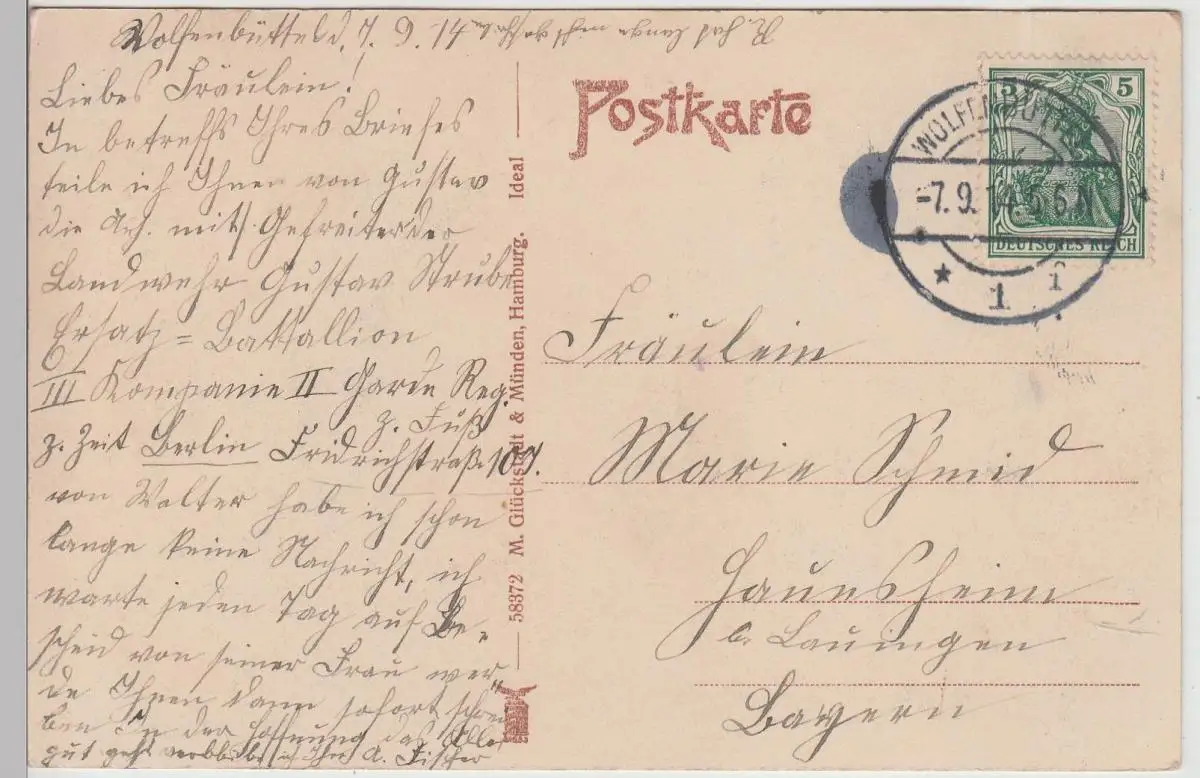 Wolfenbüttel d, 7. 9. 14
Liebes Fräulein!
In betreffs Ihres Briefes
teile ich Ihnen von Gustav
die Adr. mit, Gefreiter der
Landwehr Gustav Strube
Ersatz = Batallion
III Kompanie II Garde Reg.
z. Fuß
z. Zeit Berlin Fridrichstraß. 107.
von Walter habe ich schon
lange keine Nachricht, ich
warte jeden Tag auf Be-
scheid von seiner Frau wer-
de Ihnen dann sofort schrei
ben In der Hoffnung das Alles
gut geht verbleibe ich Ihre A. Fischer
58372 M. Glückstadt & Münden, Hamburg. Ideal
Postkarte
5 5
DEUTSCHES REICH
WOLFENBÜTTEL
-7.9.14.5-6N
* 1
Fräulein
Marie Schmid
Haunsheim
b. Lauingen
Bayern